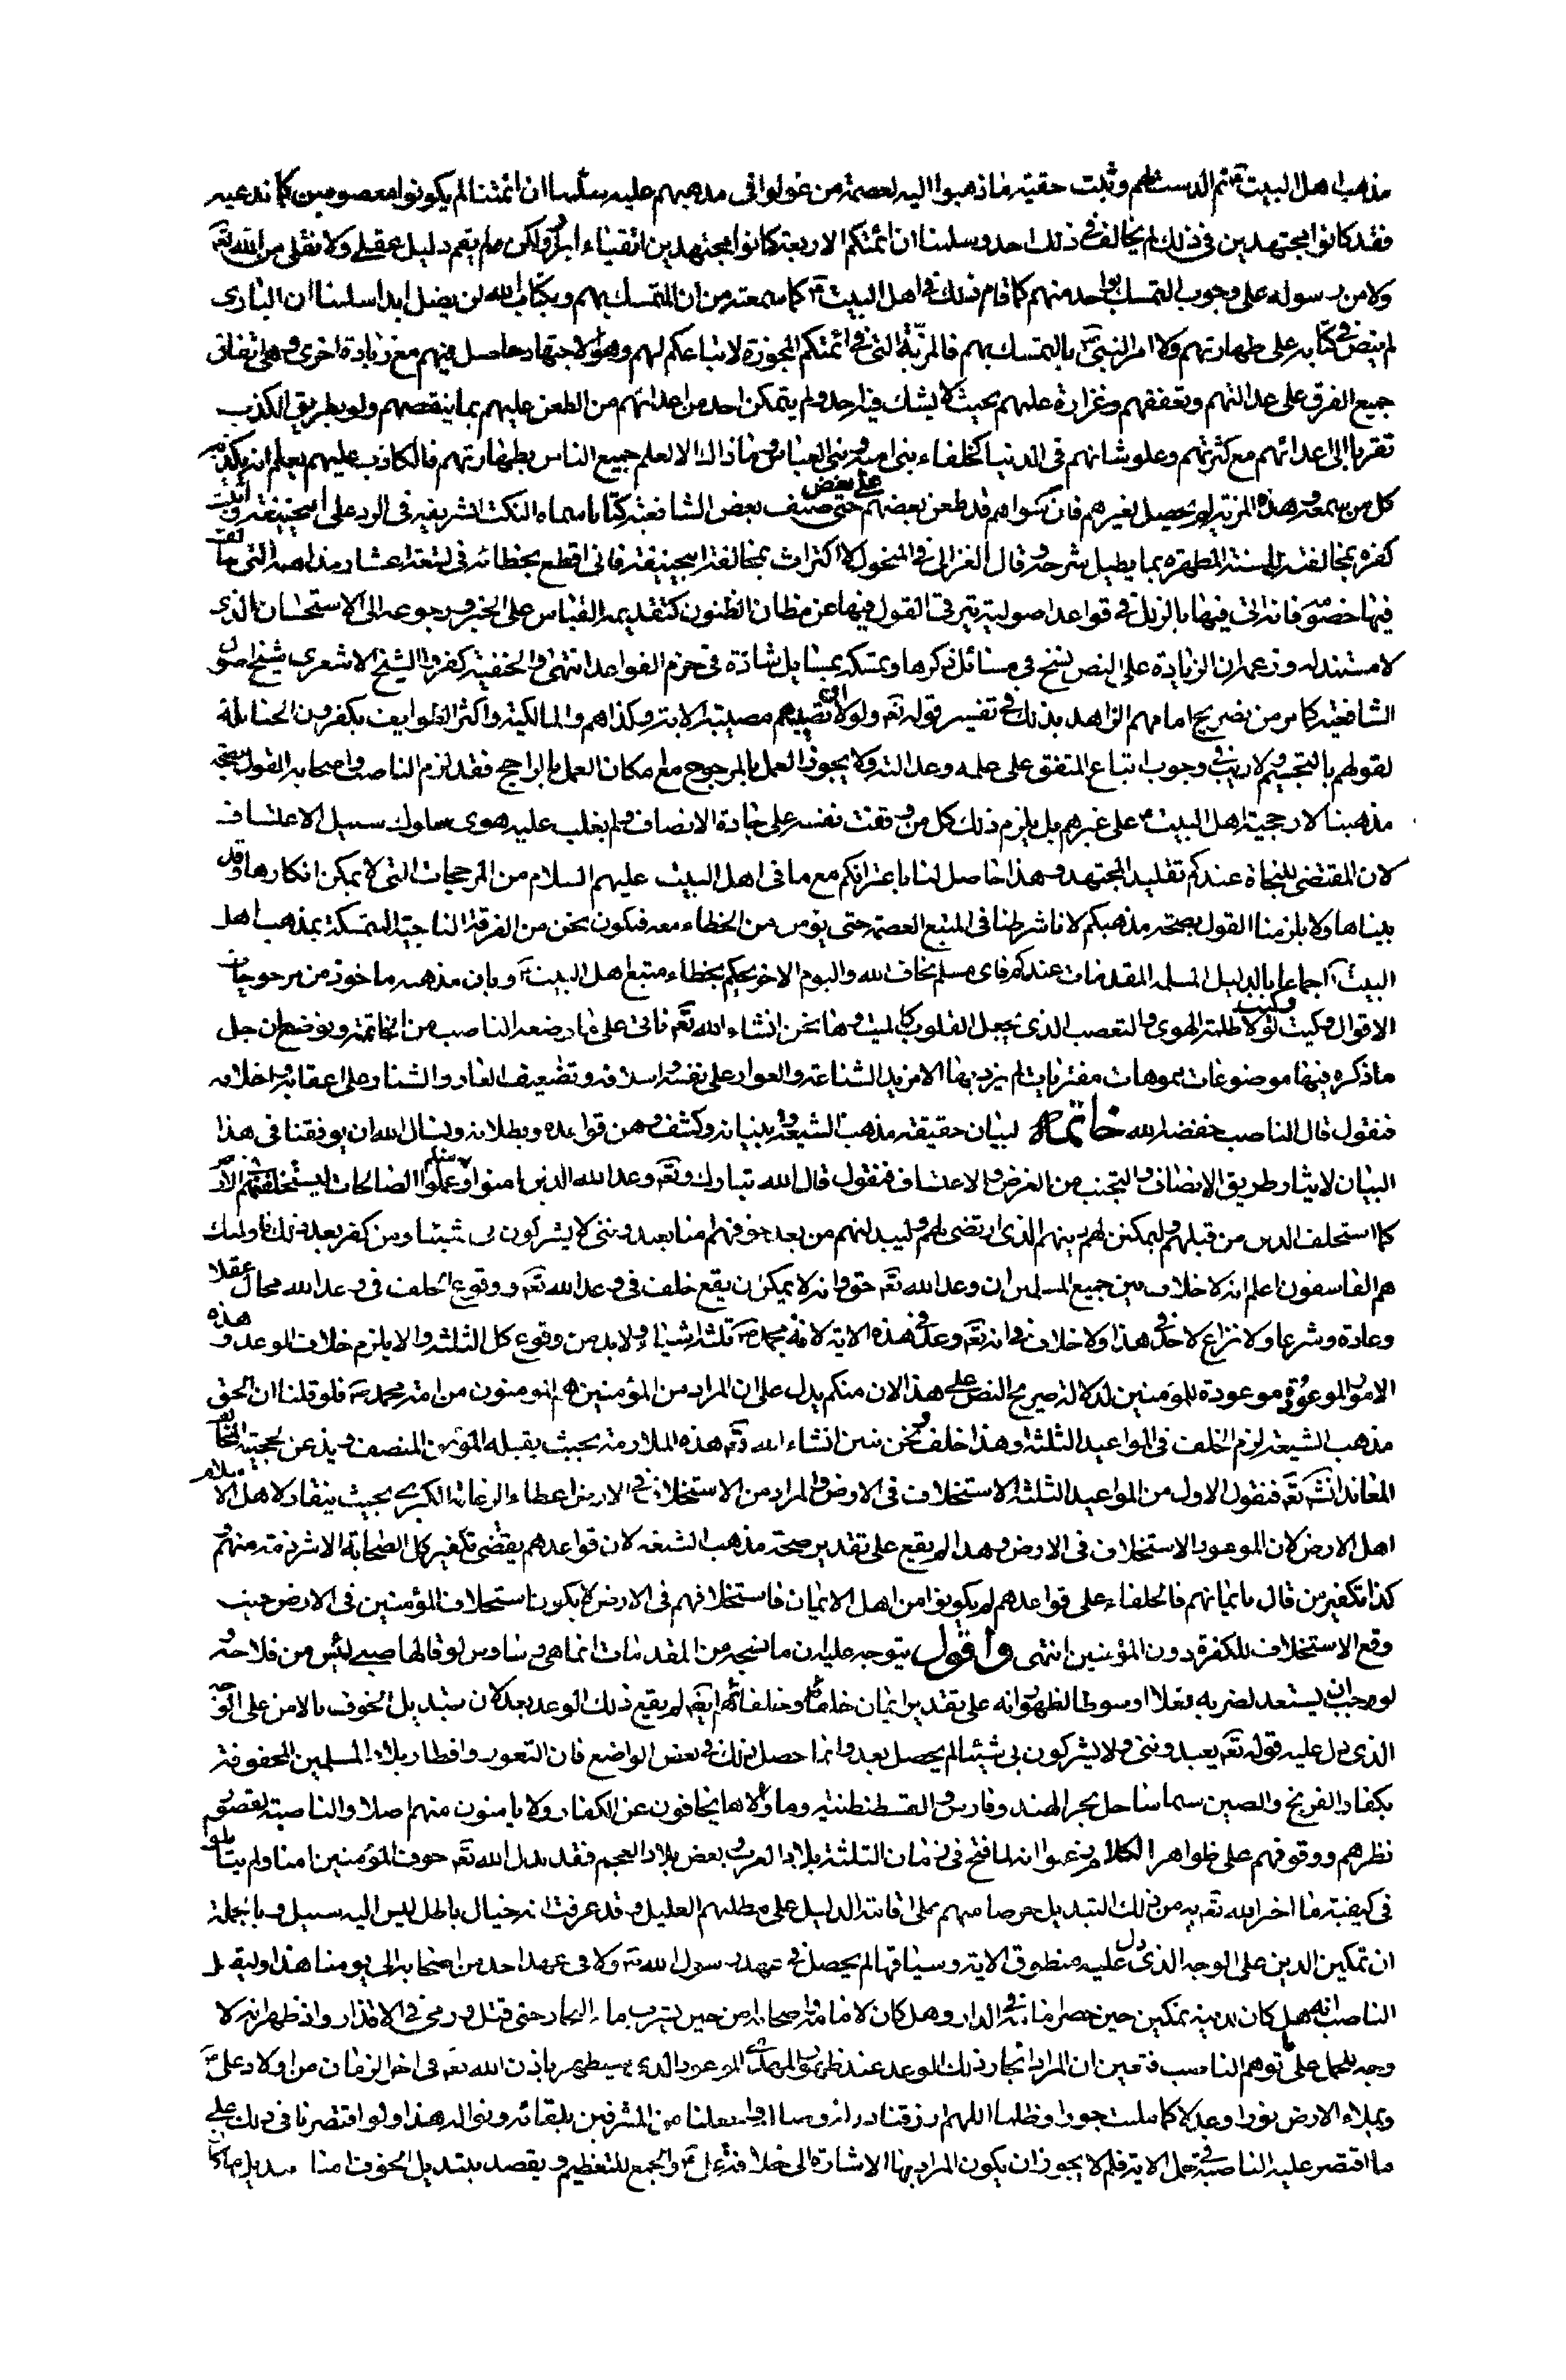 مذهب اهل البيت ؑ ثم الدست لهم وثبت حقية ما ذهبوا اليه لعصمة من عولوا فى مذهبهم عليه سلمنا ان ائمتنا لم يكونوا معصومين كما ندعيه
فقد كانوا مجتهدين فى ذلك لم يخالف فى ذلك احد وسلمنا ان ائمتكم الاربعة كانوا مجتهدين اتقياء ابرار ولكن لم يقم دليل عقلى ولا نقلى من الله تعـ
ولا من رسوله على وجوب التمسك بواحد منهم كما قام ذلك فى اهل البيت ؑ كما سمعته من ان المتمسك بهم وبكتاب الله لن يضل ابدا سلمنا ان البارى
لم ينص فى كتابه على طهارتهم ولا امر النبى ص بالتمسك بهم فالمزية التى فى ائمتكم المجوزة لاتباعكم لهم وهو الاجتهاد حاصل فيهم مع زيادة اخرى وهى اتفاق
جميع الفرق على عدالتهم وتعففهم وغزارة علمهم بحيث لا يشك فيه احد ولم يتمكن احد من اعدائهم من الطعن عليهم بما ينقصهم ولو بطريق الكذب
تقربا الى اعدائهم مع كثرتهم وعلو شانهم فى الدنيا كخلفاء بنى امية وبنى العباس وما ذاك الا لعلم جميع الناس بطهارتهم فالكاذب عليهم يعلم انه يكذبه
كل من سمعه وهذه المزية لم يحصل لغيرهم فان كثيرا هم قد طعن بعضهم على بعض حتى صنف بعض الشافعية كتابا سماه النكت الشريفة فى الرد على ابى حنيفة واثبت
كفره بمخالفته للسنة المطهرة بما يطيل شرحه وقال الغزالى فى المنخول لا اكتراث بمخالفة ابى حنيفة فانى اقطع بخطائه فى تسعة اعشار مذهبه التى خالف
فيها خصومه فانه اتى فيها بالزلل فى قواعد اصولية يترقى القول فيها عن مظان الظنون كتقديمه القياس على الخبر ورجوعه الى الاستحسان الذى
لا مستند له وزعمه ان الزيادة على النص نسخ فى مسائل ذكرها وتمسكه بمسايل شاذة فى خرم القواعد انتهى والحنفية كفروا الشيخ الاشعرى شيخ اصول
الشافعية كما مر من تصريح امامهم الزاهد بذلك فى تفسير قوله تعـ ولولا ان تصيبهم مصيبة الاية وكذا هم والمالكية واكثر الطوايف يكفرون الحنابلة
لقولهم بالتجسيم ولا ريب فى وجوب اتباع المتفق على علمه وعدالته ولا يجوز العمل بالمرجوح مع امكان العمل بالراجح فقد لزم الناصب واصحابه القول بصحة
مذهبنا لارجحية اهل البيت ؑ على غيرهم بل يلزم ذلك كل من وقفت نفسه على جادة الانصاف ولم يغلب عليه هوى سلوك سبيل الاعتساف
لان المقتضى للنجاة عندكم تقليد المجتهد وهذا حاصل لنا باعترافكم مع ما فى اهل البيت عليهم السلام من المرجحات التى لا يمكن انكارها وقد
بيناها ولا يلزمنا القول بصحة مذهبكم لانا شرطنا فى المتبع العصمة حتى يؤمن من الخطاء معه فنكون نحن من الفرقة الناجية المتمسكة بمذهب اهل
البيت ؑ اجماعا بالدليل المسلمة المقدمات عندكم فاى مسلم يخاف الله واليوم الاخر يحكم بخطاء متبع اهل البيت ؑ وبان مذهبه ماخوذ من مرجوحات
الاقوال وكيت وكيت لولا ظلمة الهوى والتعصب الذى يجعل القلوب كالميت وها نحن انشاء الله تعـ ناتى على ما وضعه الناصب من الخاتمة ونوضح ان جل
ما ذكره فيها موضوعات مموهات مفتريات لم يزد بها الا مزيد الشناعة والعوار على نفسه واسلافه وتضعيف العار والشنار على اعقابه واخلافه
فنقول قال الناصب خفضه الله خاتمة لبيان حقيقة مذهب الشيعة وبنيانه وكشف وهن قواعده وبطلانه ونسال الله ان يوفقنا فى هذا
البيان لايثار طريق الانصاف والتجنب من الغرض والاعتساف فنقول قال الله تبارك وتعـ وعد الله الذين امنوا منكم وعملوا الصالحات ليستخلفنهم فى الار
كما استخلف الذين من قبلهم وليمكنن لهم دينهم الذى ارتضى لهم وليبدلنهم من بعد خوفهم امنا يعبدوننى لا يشركون بى شيئا ومن كفر بعد ذلك فاولئك
هم الفاسقون اعلم انه لا خلاف بين جميع المسلمين ان وعد الله تعـ حق وانه لا يمكن ان يقع خلف فى وعد الله تعـ ووقوع الخلف فى وعد الله محال عقلا
وعادة وشرعا ولا نزاع لاحد فى هذا ولا خلاف فى انه تعـ وعد فى هذه الاية لامة محمد ص ثلثة اشياء ولا بد من وقوع كل الثلثة والا يلزم خلاف الوعد وهذه
الامور الموعودة موعودة للمؤمنين لدلالة صريح النص على هذا لان منكم يدل على ان المراد من المؤمنين هم المؤمنون من امة محمد ص فلو قلنا ان الحق
مذهب الشيعة لزم الخلف فى المواعيد الثلثة وهذا خلف ونحن نبين انشاء الله تعـ هذه الملازمة بحيث يقبله المؤمن المنصف ويذعن لحجيته المخالف
المعاند انشـ تعـ فنقول الاول من المواعيد الثلثة الاستخلاف فى الارض والمراد من الاستخلاف فى الارض اعطاء الزعامة الكبرى بحيث ينقاد لاهل الاسلام
اهل الارض لان الموعود الاستخلاف فى الارض وهذا لم يقع على تقدير صحة مذهب الشيعة لان قواعدهم يقتضى تكفير كل الصحابة الا شرذمة منهم و
كذا تكفير من قال بايمانهم فالخلفاء على قواعدهم لم يكونوا من اهل الايمان فاستخلافهم فى الارض لا يكون استخلاف المؤمنين فى الارض حينئذ
وقع الاستخلاف للكفرة دون المؤمنين انتهى واقول يتوجه عليه ان ما نسجه من المقدمات انما هى وساوس لو قالها صبى لئيس من فلاحه و
لوجب ان يستعد لضربه نعلا او سوطا لظهور انه على تقدير ايمان خلفائه وخلفائهم ايضـ لم يقع ذلك الوعد بعد لان تبديل الخوف بالامن على الوجه
الذى دل عليه قوله تعـ يعبدوننى ولا يشركون بى شيئا لم يحصل بعد وانما حصل ذلك فى بعض المواضع فان الثغور واقطار بلاد المسلمين المحفوفة
بكفار الفرنج والصين سيما ساحل بحر الهند وفارس والقسطنطنية وما والاها يخافون عن الكفار ولا يامنون منهم اصلا والناصبة لقصور
نظرهم ووقوفهم على ظواهر الكلام زعموا انه لما فتح فى زمان الثلثة بلاد العرب وبعض بلاد العجم فقد بدل الله تعـ خوف المؤمنين امنا ولم يتاملوا
فى كيفية ما اخبر الله تعـ به من ذلك التبديل حرصا منهم على اقامة الدليل على مطلبهم العليل وقد عرفت انه خيال باطل ليس اليه سبيل وبالجملة
ان تمكين الدين على الوجه الذى دل عليه منطوق الاية وسياقها لم يحصل فى عهد رسول الله ص ولا فى عهد احد من اصحابه الى يومنا هذا وليقل
الناصب انه هل كان لدينه تمكين حين حصر امامه فى الدار وهل كان لامامه واصحابه امن حين حتى قتل ورمى فى الاقذار واذ ظهر انه لا
وجه للحمل على توهم الناصب فتعين ان المراد انجاز ذلك الوعد عند ظهور المهدى الموعود الذى سيظهر باذن الله تعـ فى اخر الزمان من اولاد على ؑ
ويملاء الارض نورا وعدلا كما ملئت جورا وظلما اللهم ارزقنا واجعلنا من المشرفين بلقائه ونواله هذا ولو اقتصرنا فى ذلك على
ما اقتصر عليه الناصبة فى حمل الاية فلم لا يجوز ان يكون المراد بها الاشارة الى خلافة على ؑ والجمع للتعظيم ويقصد بتبديل الخوف امنا